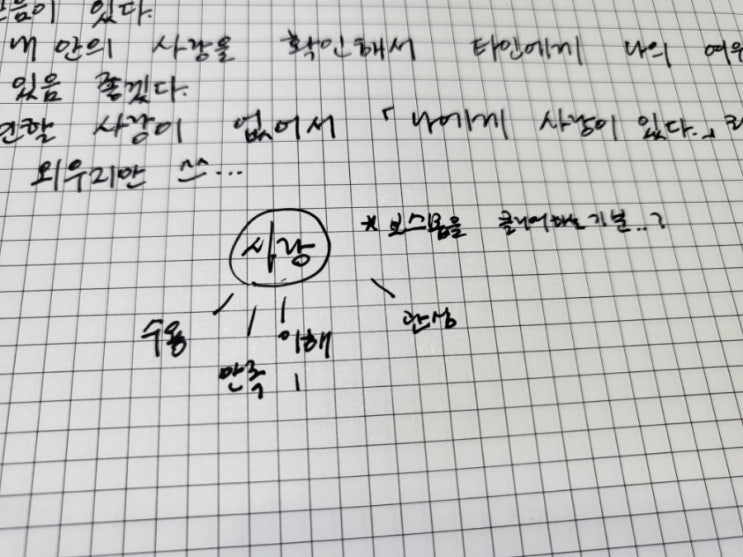 있다.
내 안의 사랑을 확인해서 타인에게 나의
있음 좋겠다.
사랑이 없어서 「나에게 사랑이 있다.」
외우리만 쓰...
사랑
* 보스몹을 클리어하는 기분..?
수용
만족
이해
관심